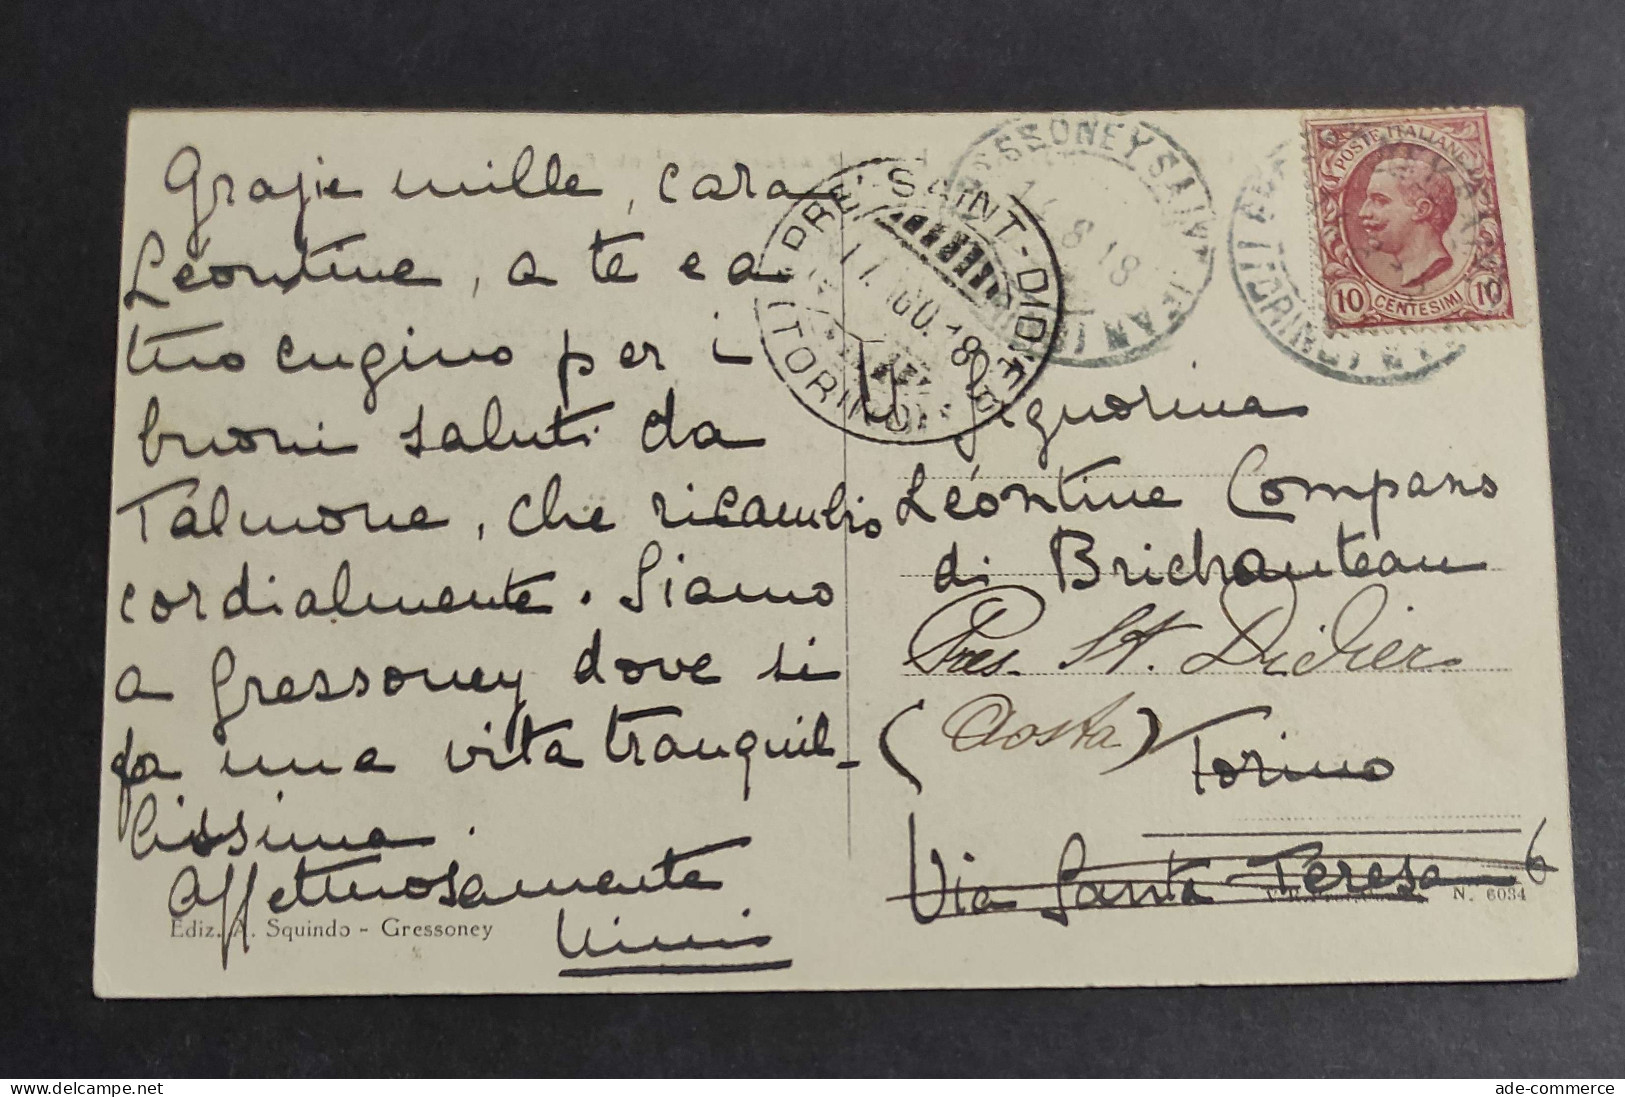 Grazie mille, cara
Léontine, a te e a
tuo cugino per i
buoni saluti da
Talmone, che ricambio
cordialmente. Siamo
a Gressoney dove si
fa una vita tranquil-
lissima.
Affettuosamente
Mimì
Ediz. A. Squindo - Gressoney
POSTE ITALIANE
10 CENTESIMI 10
GRESSONEY SAINT
8 18
PRE'-SAINT-DIDIER
17 AGO. 18
(TORINO)
Signorina
Léontine Compans
di Brichanteau
Pres St. Didier
(Aosta)
Torino
Via Santa Teresa 6
N. 6034
ade-commerce